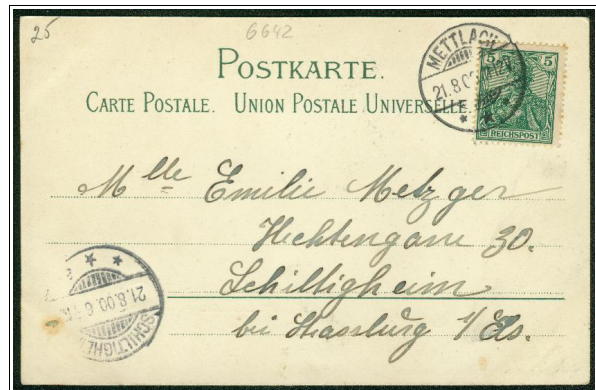 25
6642
POSTKARTE.
CARTE POSTALE. UNION POSTALE UNIVERSELLE.
METTLACH
21.8.00
5 5
REICHSPOST
Mlle Emilie Metzger
Hechtengasse 30.
Schiltigheim
bei Strassburg i/Els.
21.8.00.6
SCHILTIGHEIM